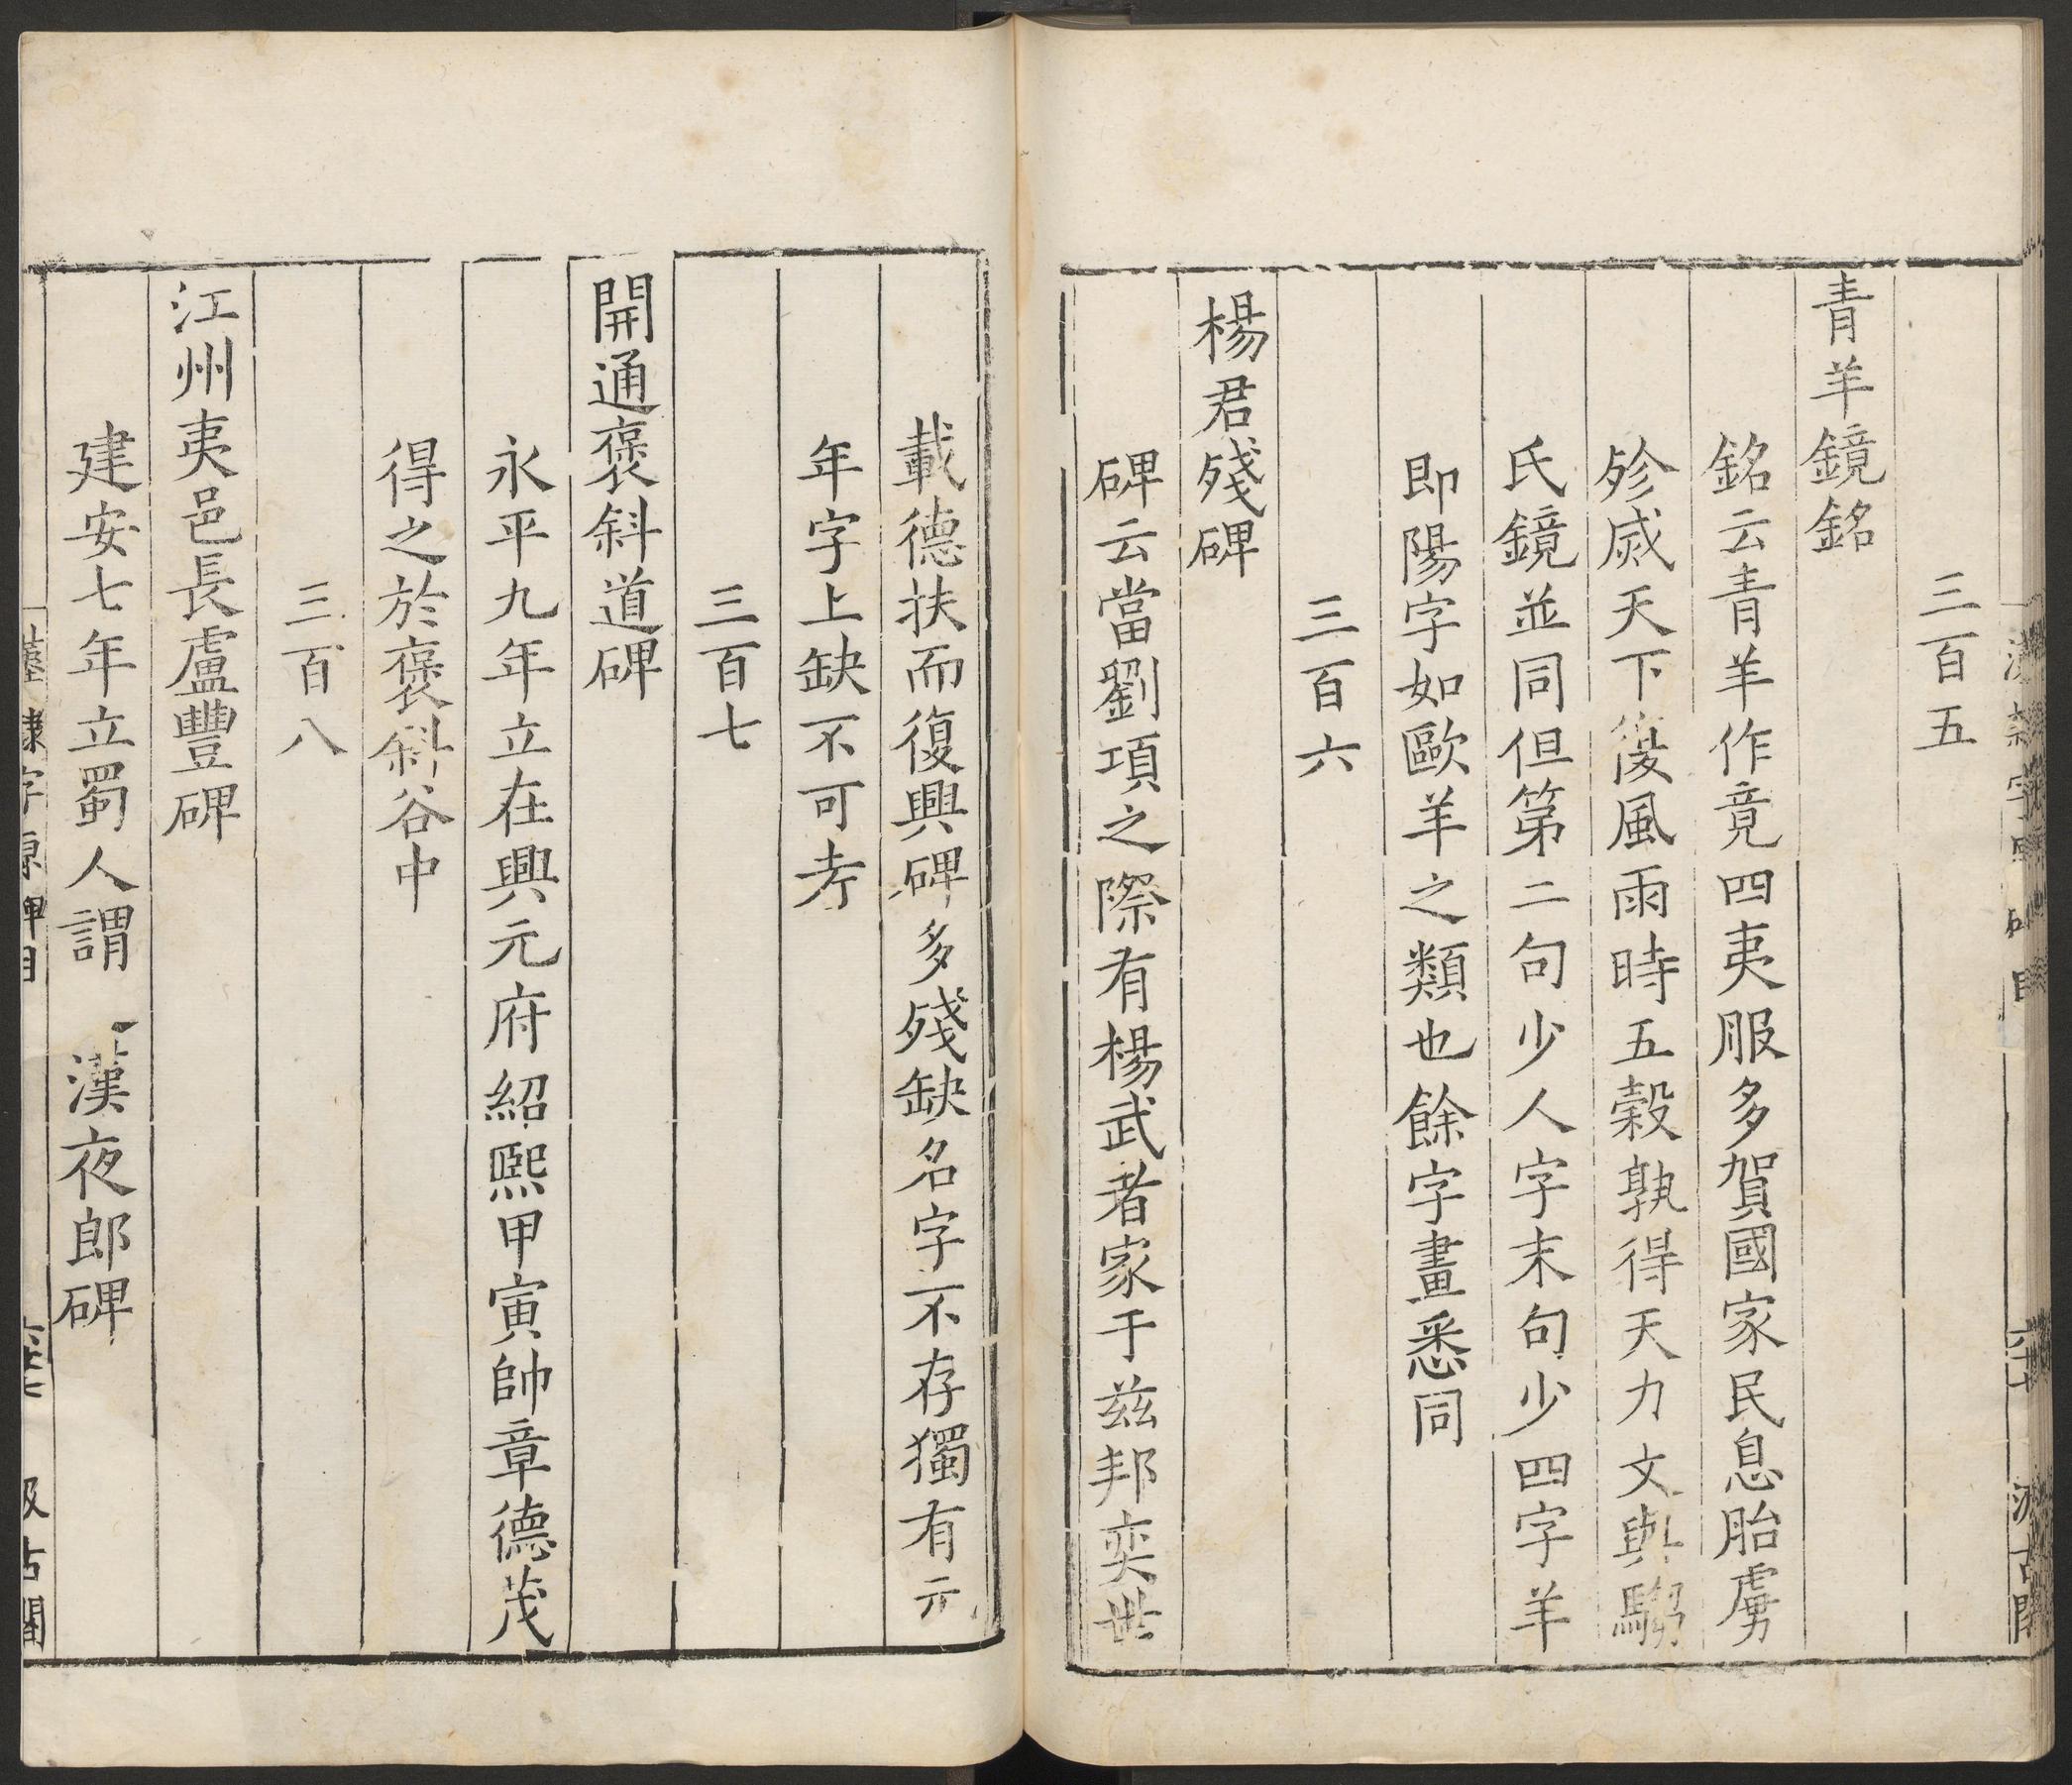 三百五
青羊鏡銘
銘云青羊作竟四夷服多賀國家民息胎虜
殄烕天下復風雨時五穀孰得天力文與騶
氏鏡並同但第二句少人字末句少四字羊
即陽字如歐羊之類也餘字畫悉同
三百六
楊君殘碑
碑云當劉項之際有楊武者家于兹邦奕世
載德扶而復興碑多殘缺名字不存獨有元
年字上缺不可考
三百七
開通褒斜道碑
永平九年立在興元府紹熙甲寅帥章德茂
得之於褒斜谷中
三百八
江州夷邑長盧豐碑
建安七年立蜀人謂漢夜郎碑
隸字源碑目
汲古閣